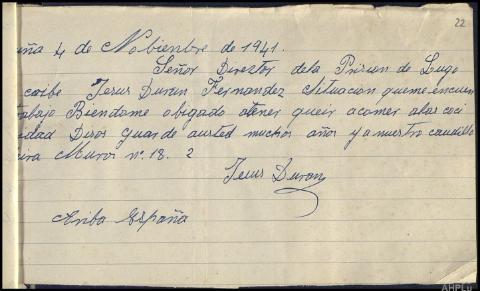 22
uña 4 de Nobienbre de 1941.
Señor Director dela Prision de Lugo
caribe Jesus Duran Fernandez Situacion queme encuen
tabajo Biendome obigado atener queir acomer alas coci
idad Dios guarde austed muchos años ya nuestro caudillo
eira Muros nº. 18. 2
Jesus Duran
Ariba España
AHPLu